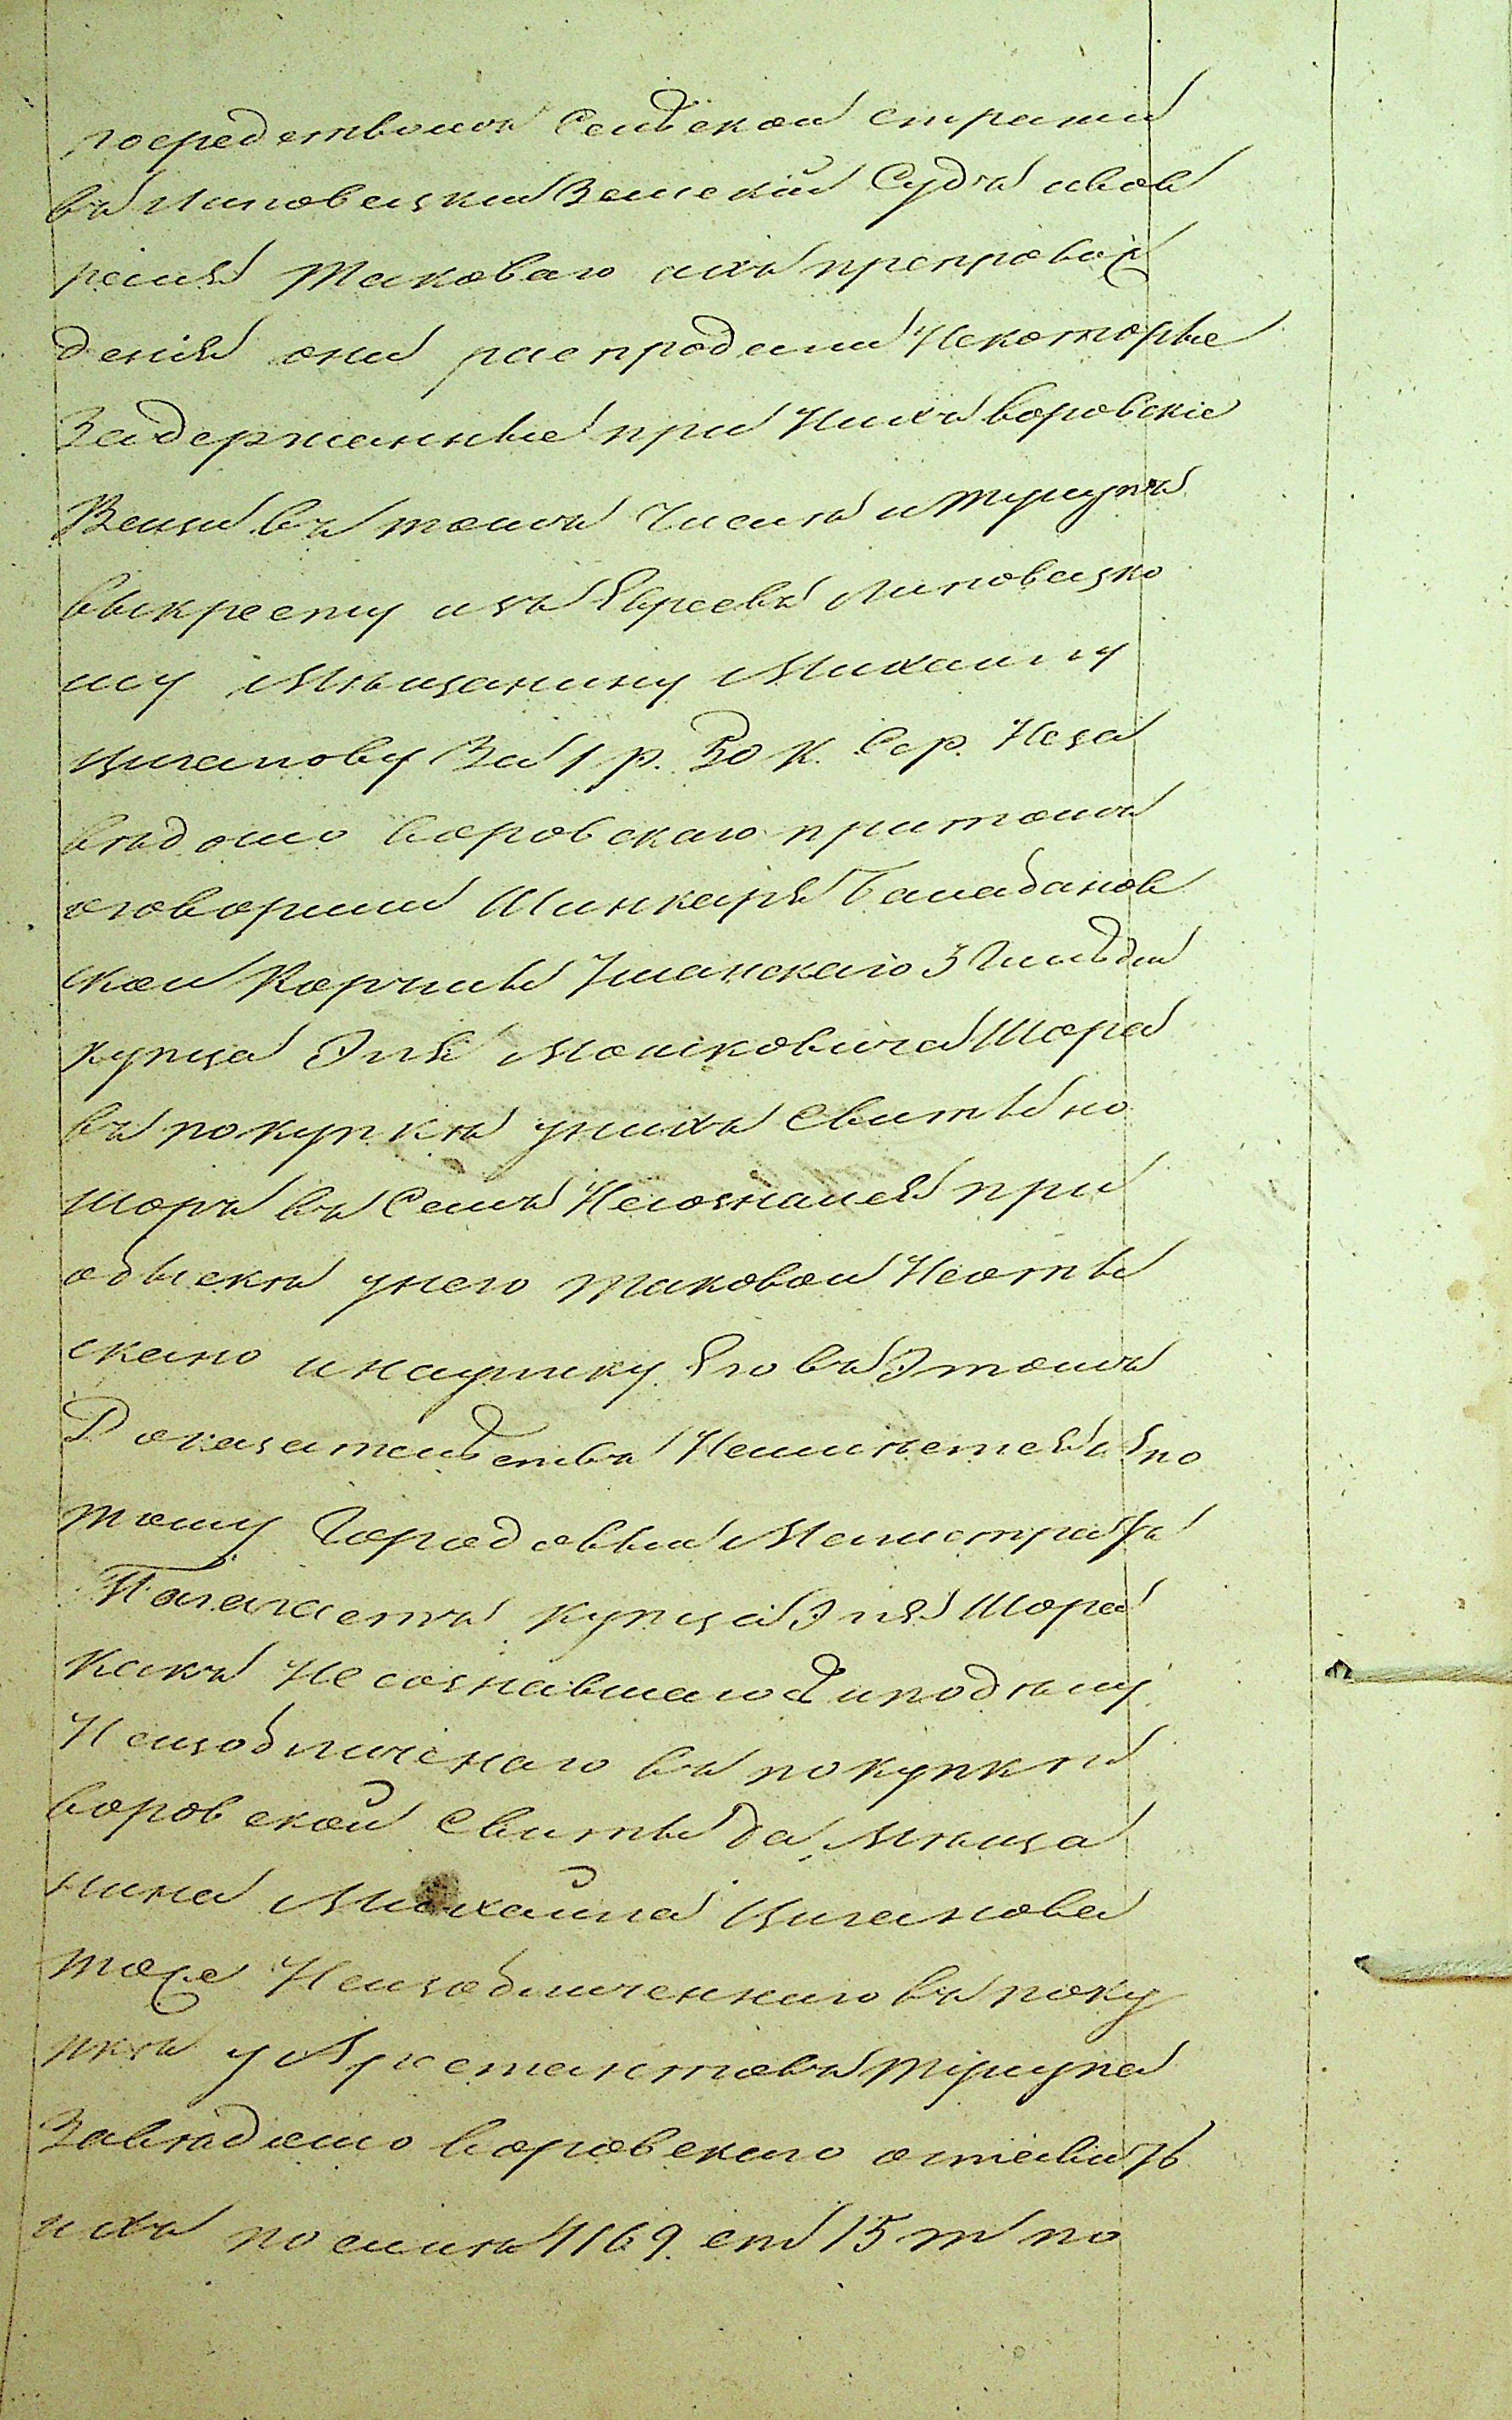 посредствомъ Сельской стражи
въ Липовецкий Земскій Судъ ивов
ремя таковаго ихъ препровож
денія они распродали Некоторые
Задержанные при Нихъ воровскіе
Вещи въ томъ Числѣ и тулупъ
выкресту изъ Евреевъ Липовецко
му Мѣщанину Михаилу
Циганову За 1 р. 50 к. Сер. Неза
вѣдомо воровскаго притомъ
оговорили Шинкаря Балабанов
ской Корчмы Уманскаго 3 Гильдіи
купца Эля Мошковича Шора
въ покупкѣ унихъ Свиты но
Шоръ въ Семъ Несознался при
обыскѣ унего таковой Неоты
скано и науліку Его въ Этомъ
Доказательствъ Неимѣется Апо
тому Городовый Магистратъ
Полагаетъ купца Эля Шора
какъ Несознавшагося иподѣлу
Неизобличенаго въ покупкѣ
воровской Свиты да Мѣща
нина Михайла Циганова
тоже Неизобличеннаго въ поку
пкѣ у Арестантовъ тулупа
Завѣдомо воровскаго оставить
ихъ посилѣ 1169. ст 15 т по